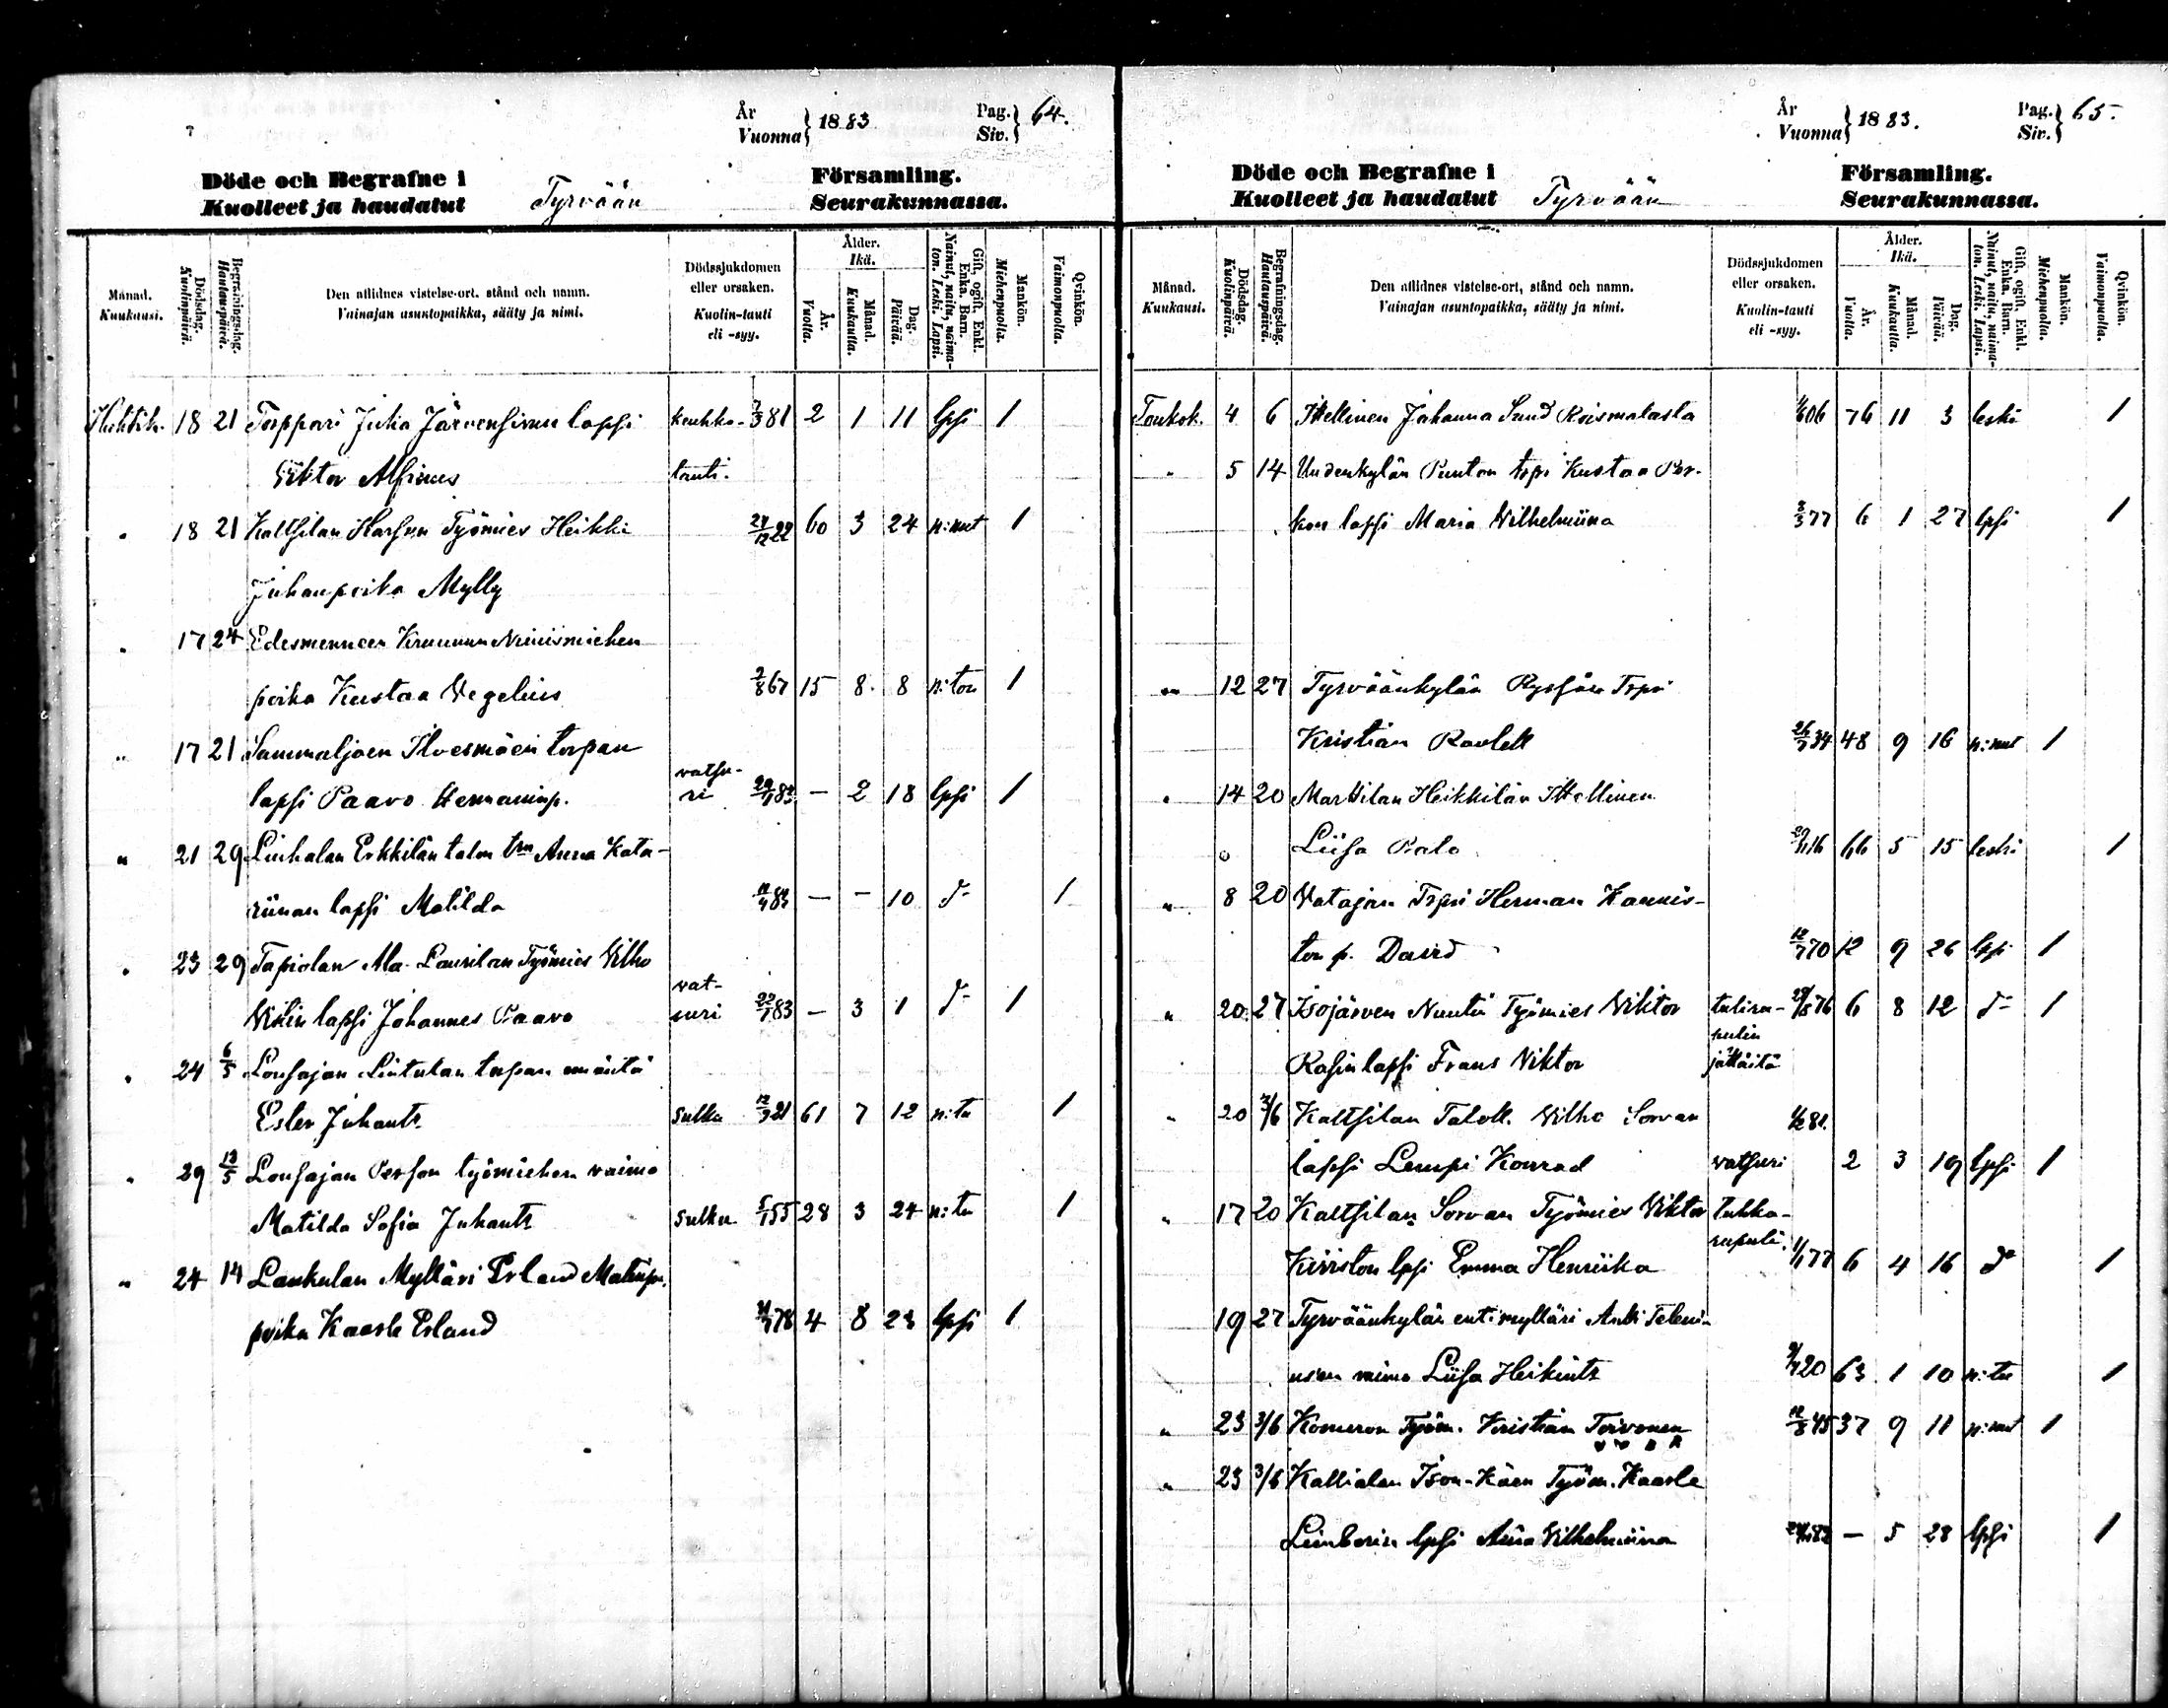 År
Vuonna } 1883
Pag.
Siv. } 64.
Döde och Begrafne i
Kuolleet ja haudatut
Tyrvään
Församling.
Seurakunnassa.
Månad.
Kuukausi.
Dödsdag.
Kuolinpäivä.
Begrafningsdag.
Hautauspäivä.
Den aflidnes vistelse-ort, stånd och namn.
Vainajan asuntopaikka, sääty ja nimi.
Dödssjukdomen
eller orsaken.
Kuolin-tauti
eli -syy.
Ålder.
Ikä.
År.
Vuotta.
Månad.
Kuukautta.
Dag.
Päivää.
Gift, ogift, Enkl.
Enka. Barn.
Nainut, naitu, naima-
ton. Leski. Lapsi.
Mankön.
Miehenpuolta.
Qvinkön.
Vaimonpuolta.
Huhtik. 18 21 Torppari Juha Järvensivun lapsi keuhko- 7/3 81 2 1 11 lpsi 1
Viktor tauti.
" 18 21 Kaltsilan Työmies Heikki 24/12 22 60 3 24 n:nut 1
Juhanpoika Mylly
" 17 24 Kruunun Nimismiehen
poika Kustaa Vegelius 7/8 67 15 8 8 n:ton 1
" 17 21 Sammaljoen Ilvesmäen torpan
lapsi Paavo Hermaninp. vatsuri 83 — 2 18 lpsi 1
" 21 29 Liuhalan Erkkilän talon Anna Kata-
riinan lapsi Matilda 11/4 83 — — 10 d:o 1
" 23 29 Tapiolan Ala-Laurilan Työmies Vilho
lapsi Johannes Paavo vatsuri 22/1 83 — 3 1 d:o 1
" 24 6/5 Lousajan Lintulan torpan emäntä
Ester Juhantr. sulku 12/9 21 61 7 12 n:tu 1
" 29 13/5 Lousajan työmiehen vaimo
Matilda Sofia Juhantr sulku 5/1 55 28 3 24 n:tu 1
" 24 14 Laukulan Mylläri Erland Matinp.
poika Kaarle Erland 78 4 8 23 lpsi 1
År
Vuonna } 1883.
Pag.
Siv. } 65.
Döde och Begrafne i
Kuolleet ja haudatut
Tyrvään
Församling.
Seurakunnassa.
Månad.
Kuukausi.
Dödsdag.
Kuolinpäivä.
Begrafningsdag.
Hautauspäivä.
Den aflidnes vistelse-ort, stånd och namn.
Vainajan asuntopaikka, sääty ja nimi.
Dödssjukdomen
eller orsaken.
Kuolin-tauti
eli -syy.
Ålder.
Ikä.
År.
Vuotta.
Månad.
Kuukautta.
Dag.
Päivää.
Gift, ogift, Enkl.
Enka. Barn.
Nainut, naitu, naima-
ton. Leski. Lapsi.
Mankön.
Miehenpuolta.
Qvinkön.
Vaimonpuolta.
Toukok. 4 6 Itsellinen Johanna Sund Roismalasta 1/6 06 76 11 3 leski 1
" 5 14 Uudenkylän Kustaa
lapsi Maria Vilhelmiina 8/3 77 6 1 27 lpsi 1
" 12 27 Tyrväänkylän
Kristian 26/7 34 48 9 16 n:nut 1
" 14 20 Marttilan Heikkilän Itsellinen
Liisa Palo 16 66 5 15 leski 1
" 8 20 Vatajan Trpri Herman Kannis-
ton p. David 12/7 70 12 9 26 lpsi 1
" 20 27 Isojärven Työmies Viktor tuliru- 76 6 8 12 d:o 1
lapsi Frans Viktor pulin
jättäitä
" 20 3/6 Kaltsilan Taloll. Vilho Sorvan 1/2 81.
lapsi Lempi Konrad vatsuri 2 3 19 lpsi 1
" 17 20 Kaltsilan Sorvan Työmies Viktor tuhka-
lpsi Emma Henriika rupuli. 1/1 77 6 4 16 d:o 1
19 27 Tyrväänkylän ent. mylläri Antti
vaimo Liisa Heikintr 9/4 20 63 1 10 n:tu 1
" 23 3/6 Komeron Työm. Kristian Toivonen 12/8 45 37 9 11 n:nut 1
" 23 3/6 Kallialan Työm. Kaarle
lpsi Vilhelmiina 82 — 5 28 lpsi 1